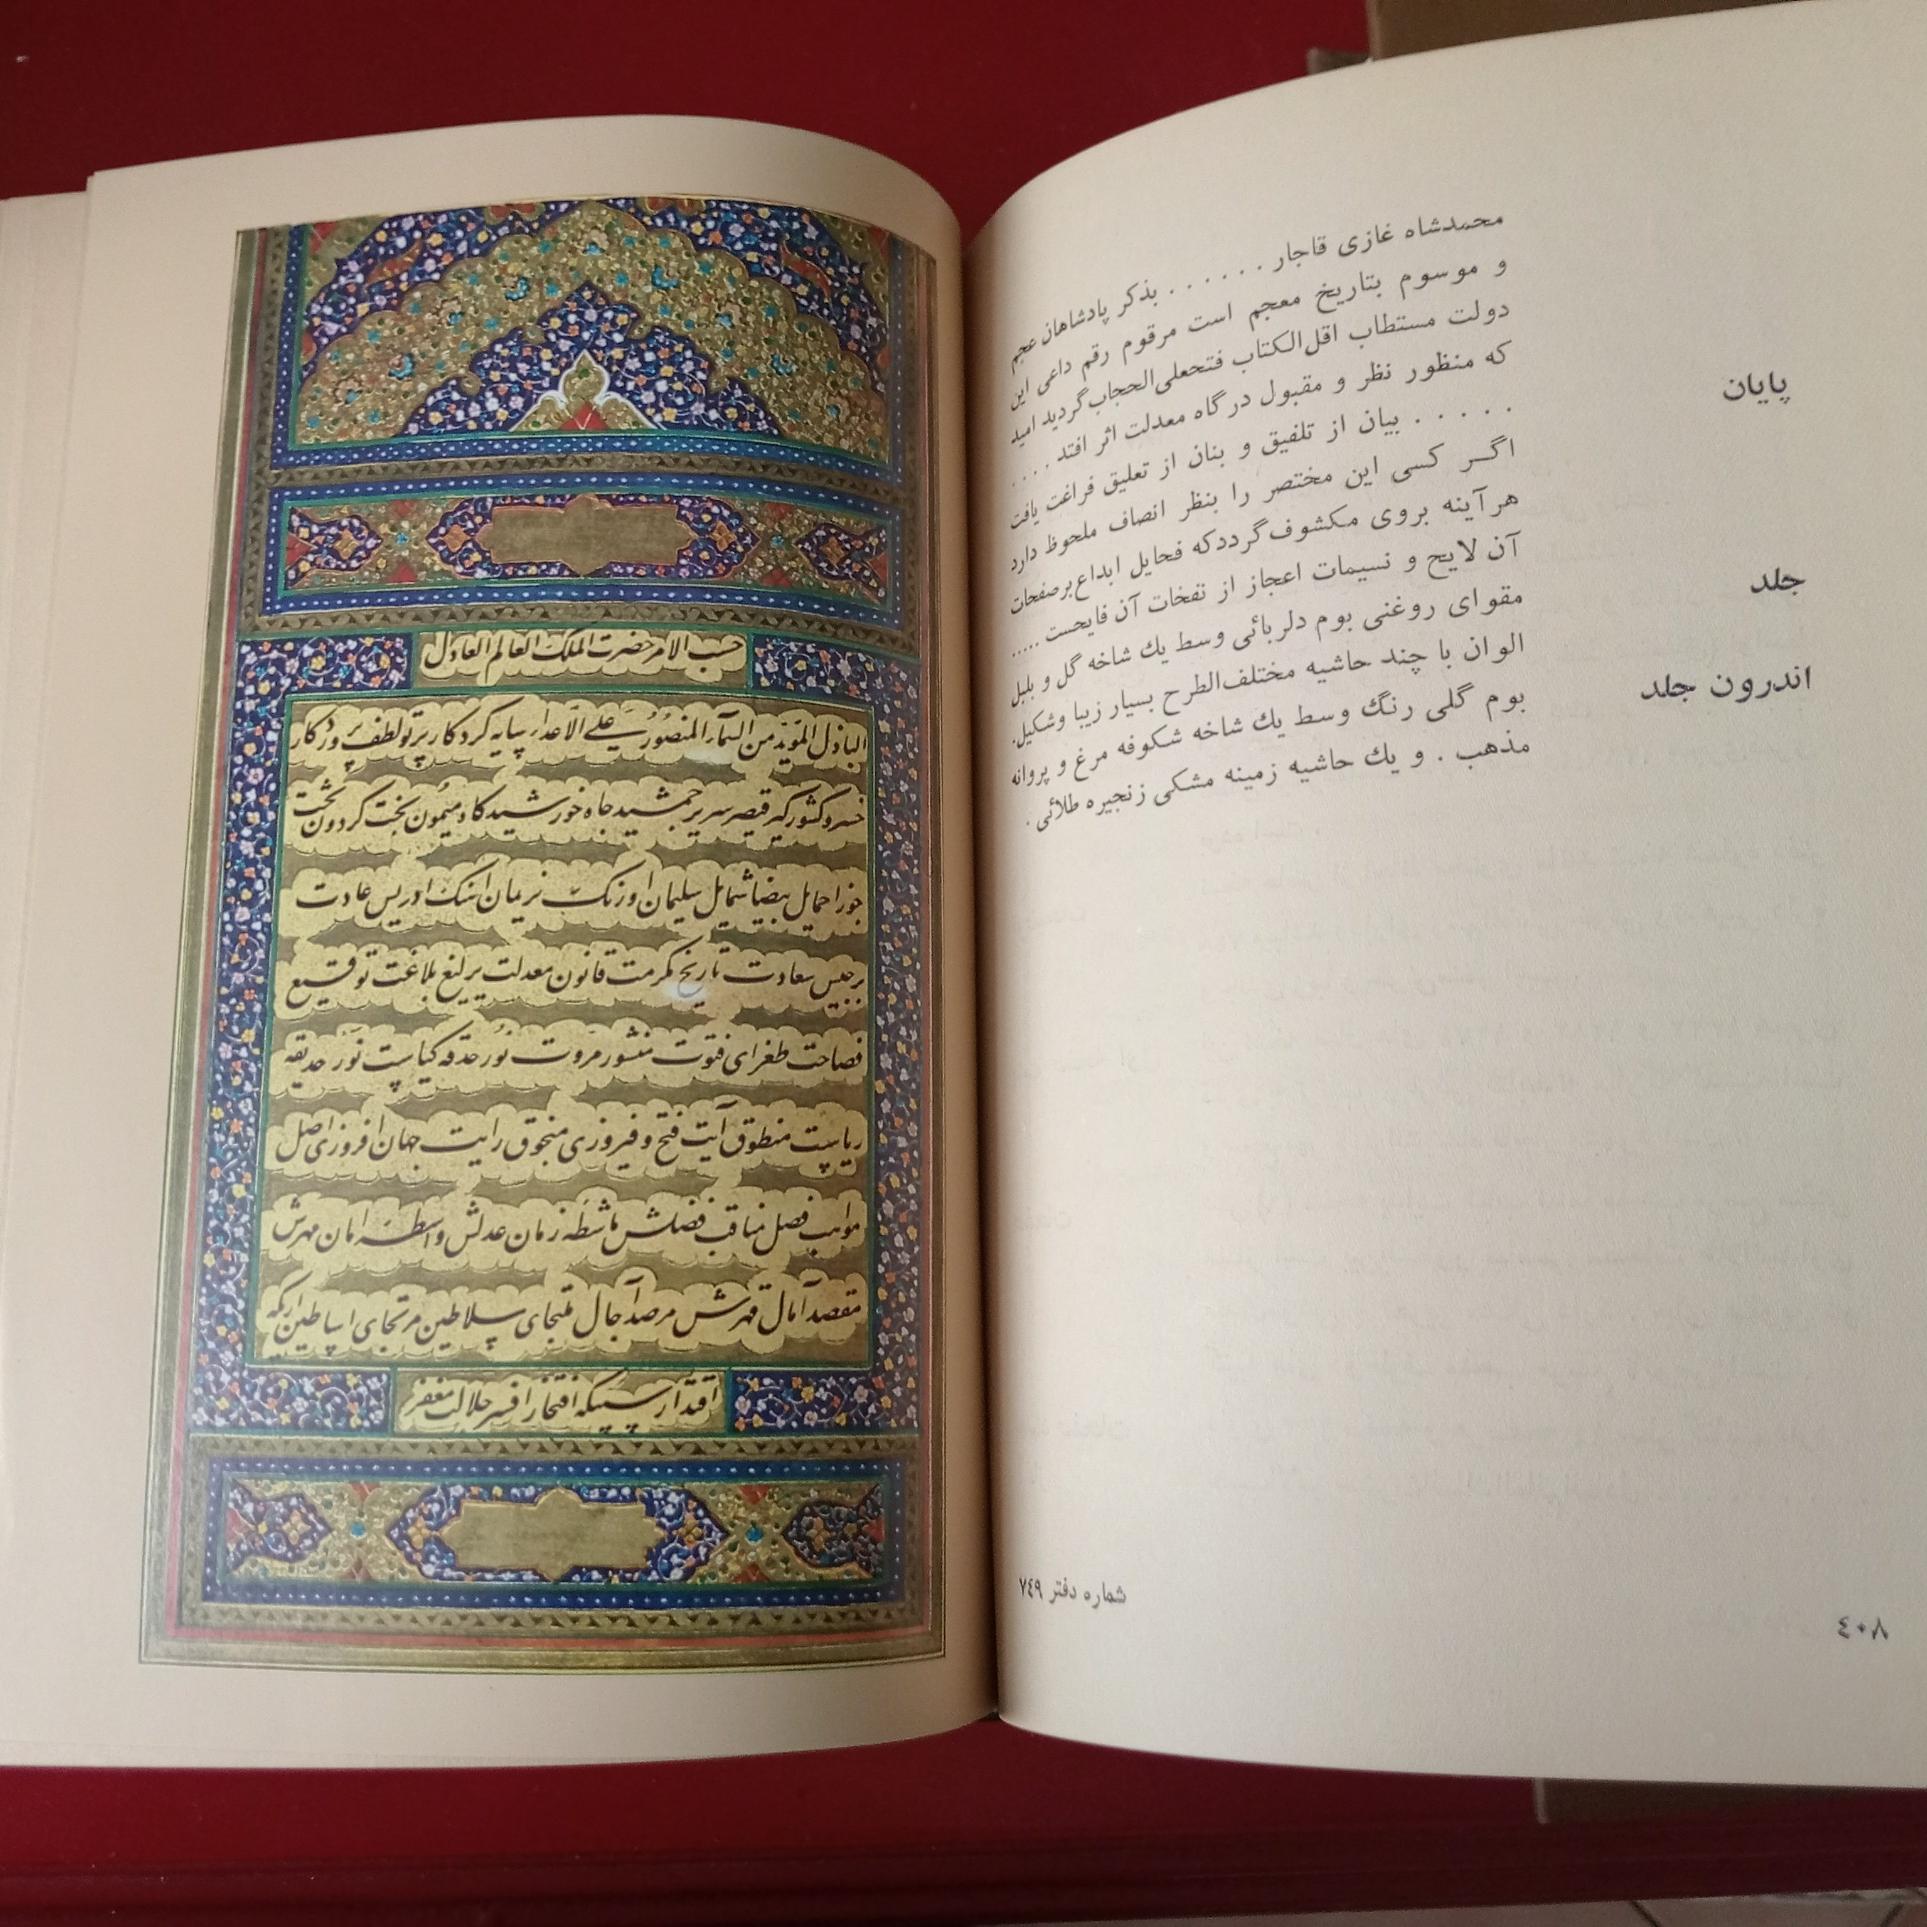 محمدشاه غازی قاجار . . . . . . بذکر پادشاهان عجم
و موسوم بتاریخ معجم است مرقوم رقم داعی این
دولت مستطاب اقل‌الکتاب فتحعلی‌الحجاب گردید امید
که منظور نظر و مقبول درگاه معدلت اثر افتد . . . .
پایان
. . . . . بیان از تلفیق و بنان از تعلیق فراغت یافت
اگر کسی این مختصر را بنظر انصاف ملحوظ دارد
هرآینه بروی مکشوف گردد که فحایل ابداع بر صفحات
آن لایح و نسیمات اعجاز از تفخات آن فایحست .....
جلد
مقوای روغنی بوم دلربائی وسط یك شاخه گل و بلبل
الوان با چند حاشیه مختلف‌الطرح بسیار زیبا وشکیل.
اندرون جلد
بوم گلی رنگ وسط یك شاخه شکوفه مرغ و پروانه
مذهب . و یك حاشیه زمینه مشکی زنجیره طلائی .
شماره دفتر ۷٤۹
٤۰۸
حسب الامر حضرت الملک العالم العادل
الباذل المؤید من السماء المنصور علی الاعداء سایه کردکار پرتو لطف پروردکار
خسرو کشورکیر قیصر سریر جمشید جاه خورشید کاه میمون بخت کردون تخت
جوزا حمایل بیضا شمایل سلیمان اورنک نریمان اننک ادریس عادت
برجیس سعادت تاریخ مکرمت قانون معدلت یرلیغ بلاغت توقیع
فصاحت طغرای فتوت منشور مروت نور حدقه کیاست نور حدیقه
ریاست منطوق آیت فتح و فیروزی منجوق رایت جهان افروزی اصل
مواهب فصل مناقب فضلش ماشطه زمان عدلش واسطه امان مهرش
مقصد آمال قهرش مرصد آجال ملتجای سلاطین مرتجای اساطین اریکه
اقتدار سبیکه افتخار افسر جلالت مغفر